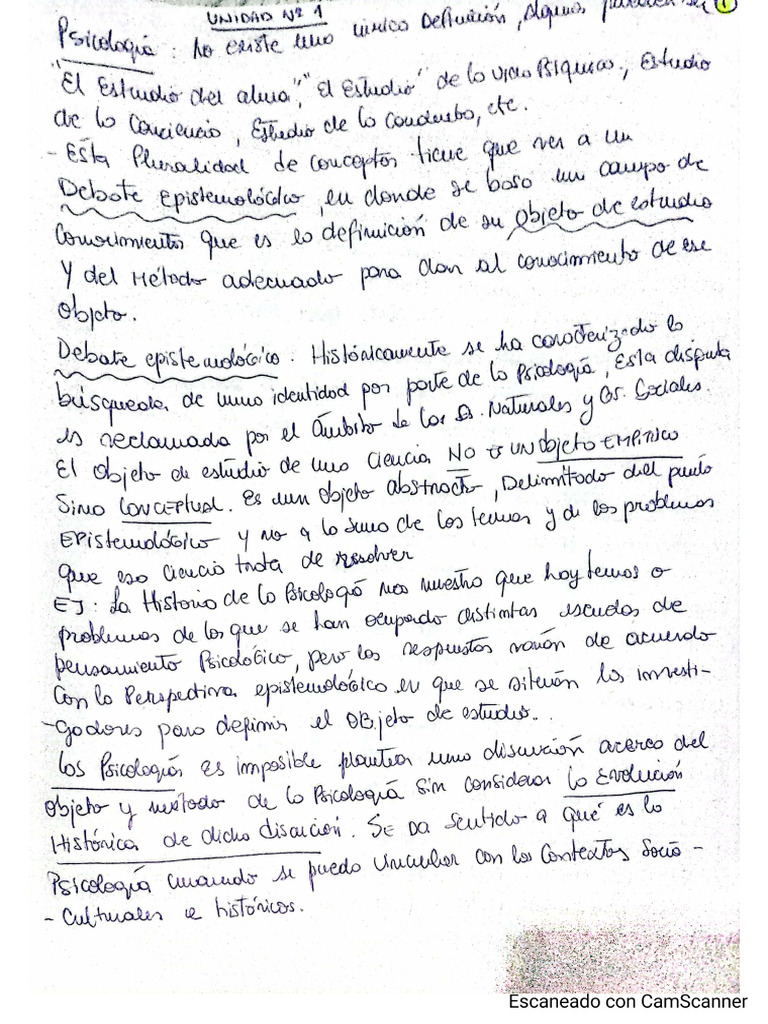 UNIDAD Nº 1
Psicología: No existe una única Definición, algunas pueden ser 1
"El Estudio del alma", "El Estudio" de la vida Psíquica, Estudio
de la Conciencia, Estudio de la Conducta, etc.
- Esta Pluralidad de conceptos tiene que ver a un
Debate Epistemológico, en donde se basa un campo de
Conocimiento que es la definición de su objeto de estudio
Y del Método adecuado para dar al conocimiento de ese
Objeto.
Debate epistemológico. Históricamente se ha caracterizado la
búsqueda de una identidad por parte de la Psicología, Esta disputa
es reclamada por el ámbito de las Cs. Naturales y Cs. Sociales.
El objeto de estudio de una Ciencia NO es UN Objeto EMPÍRICO
Sino CONCEPTUAL. Es un objeto abstracto, Delimitado del punto
EPistemológico y no a la suma de los temas y de los problemas
que esa ciencia trata de resolver
EJ: La Historia de la Psicología nos muestra que hay temas o
problemas de los que se han ocupado distintas escuelas de
pensamiento Psicológico, pero las respuestas varían de acuerdo
Con la Perspectiva epistemológica en que se sitúan los investi-
-gadores para definir el OBjeto de estudio..
Las Psicologías es imposible plantear una discusión acerca del
Objeto y método de la Psicología sin considerar la Evolución
Histórica de dicha discusión. SE da sentido a qué es la
Psicología cuando se pueda vincular con los Contextos Socio-
- Culturales e históricos.
Escaneado con CamScanner